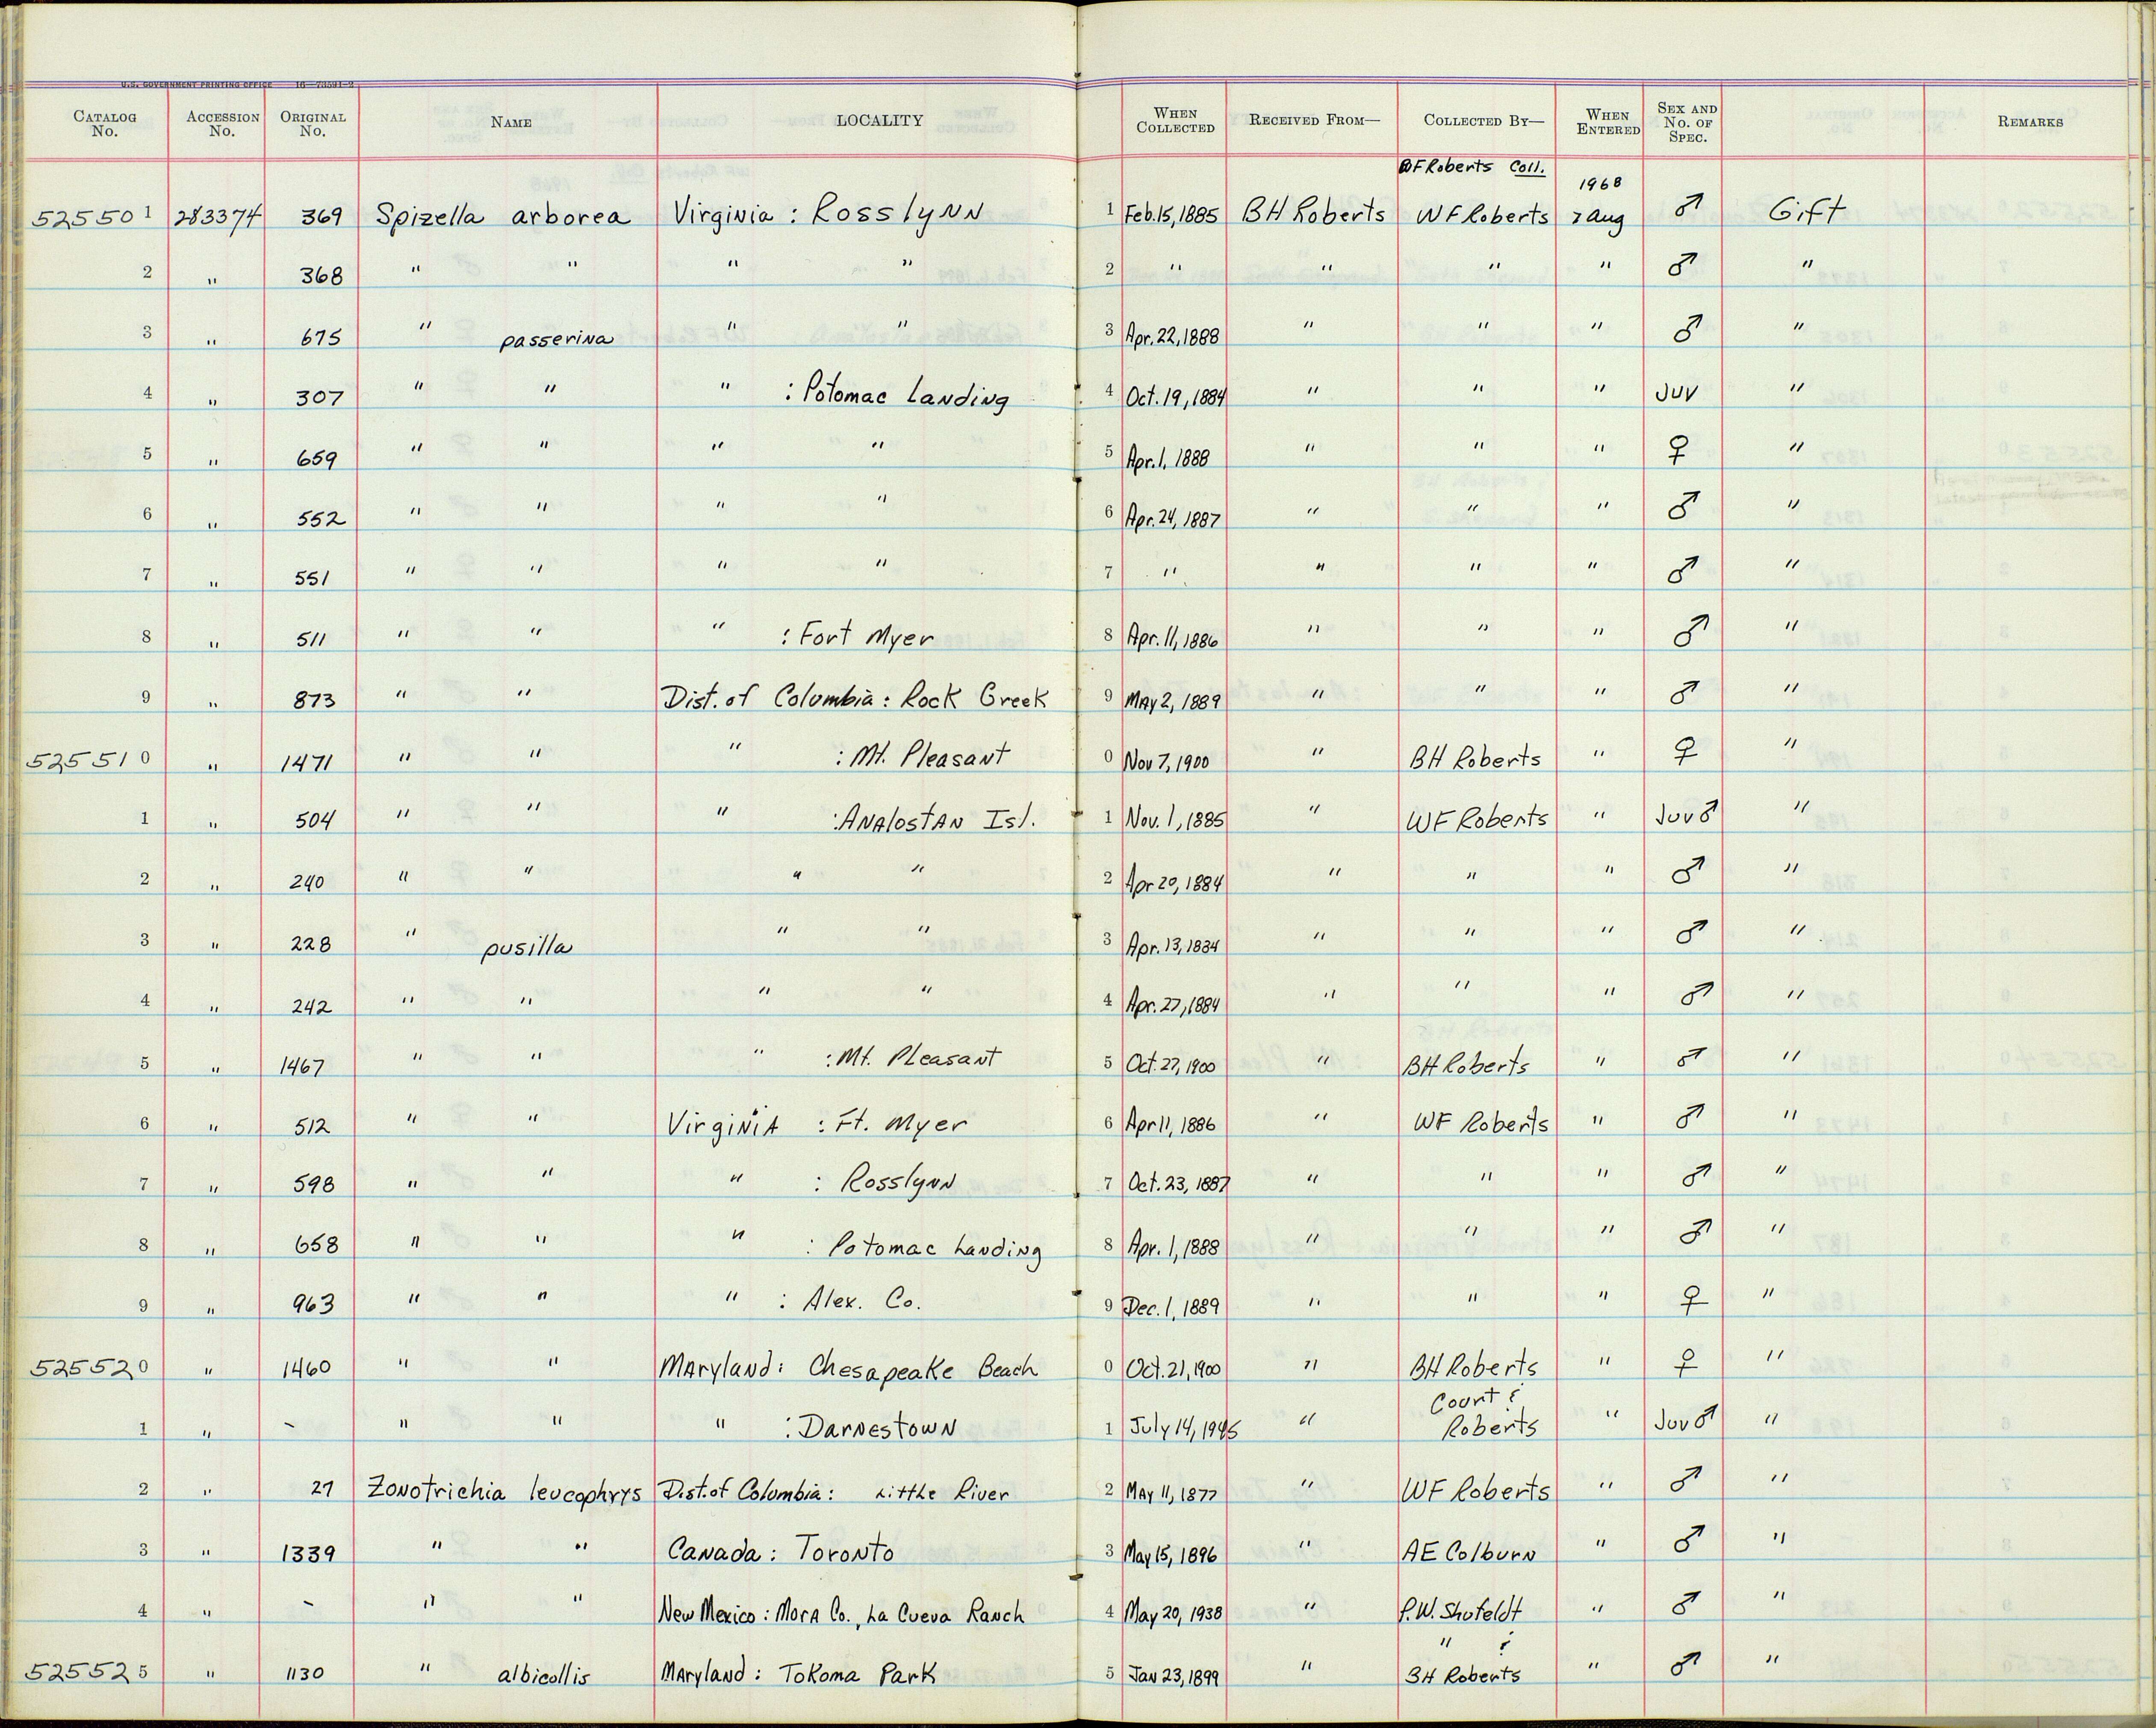 U.S. GOVERNMENT PRINTING OFFICE 16—73591-2
CATALOG No. ACCESSION No. ORIGINAL No. NAME LOCALITY WHEN COLLECTED RECEIVED FROM— COLLECTED BY— WHEN ENTERED SEX AND No. OF SPEC. REMARKS
WF Roberts Coll.
1968
525501 283374 369 Spizella arborea Virginia : Rosslynn 1 Feb.15,1885 BH Roberts WF Roberts 7 Aug ♂ Gift
2 " 368 " " " " 2 " " " " ♂ "
3 " 675 " passerina " " 3 Apr.22,1888 " " " ♂ "
4 " 307 " " " : Potomac Landing 4 Oct.19,1884 " " " Juv "
5 " 659 " " " " 5 Apr.1, 1888 " " " ♀ "
6 " 552 " " " " 6 Apr.24, 1887 " " " ♂ "
7 " 551 " " " " 7 " " " " ♂ "
8 " 511 " " " : Fort Myer 8 Apr.11,1886 " " " ♂ "
9 " 873 " " Dist. of Columbia : Rock Creek 9 May 2, 1889 " " " ♂ "
525510 " 1471 " " " : Mt. Pleasant 0 Nov 7, 1900 " BH Roberts " ♀ "
1 " 504 " " " : Analostan Isl. 1 Nov. 1, 1885 " WF Roberts " Juv ♂ "
2 " 240 " " " " 2 Apr 20, 1884 " " " ♂ "
3 " 228 " pusilla " " 3 Apr. 13, 1884 " " " ♂ "
4 " 242 " " " " 4 Apr. 27, 1884 " " " ♂ "
5 " 1467 " " " : Mt. Pleasant 5 Oct. 27, 1900 " BH Roberts " ♂ "
6 " 512 " " Virginia : Ft. Myer 6 Apr 11, 1886 " WF Roberts " ♂ "
7 " 598 " " " : Rosslynn 7 Oct. 23, 1887 " " " ♂ "
8 " 658 " " " : Potomac Landing 8 Apr. 1, 1888 " " " ♂ "
9 " 963 " " " : Alex. Co. 9 Dec. 1, 1889 " " " ♀ "
525520 " 1460 " " Maryland : Chesapeake Beach 0 Oct. 21, 1900 " BH Roberts " ♀ "
Court &
1 " – " " " : Darnestown 1 July 14, 1945 " Roberts " Juv ♂ "
2 " 27 Zonotrichia leucophrys Dist. of Columbia : Little River 2 May 11, 1877 " WF Roberts " ♂ "
3 " 1339 " " Canada : Toronto 3 May 15, 1896 " AE Colburn " ♂ "
4 " – " " New Mexico : Mora Co., La Cueva Ranch 4 May 20, 1938 " P.W. Shufeldt " ♂ "
" &
525525 " 1130 " albicollis Maryland : Tokoma Park 5 Jan 23, 1899 " BH Roberts " ♂ "